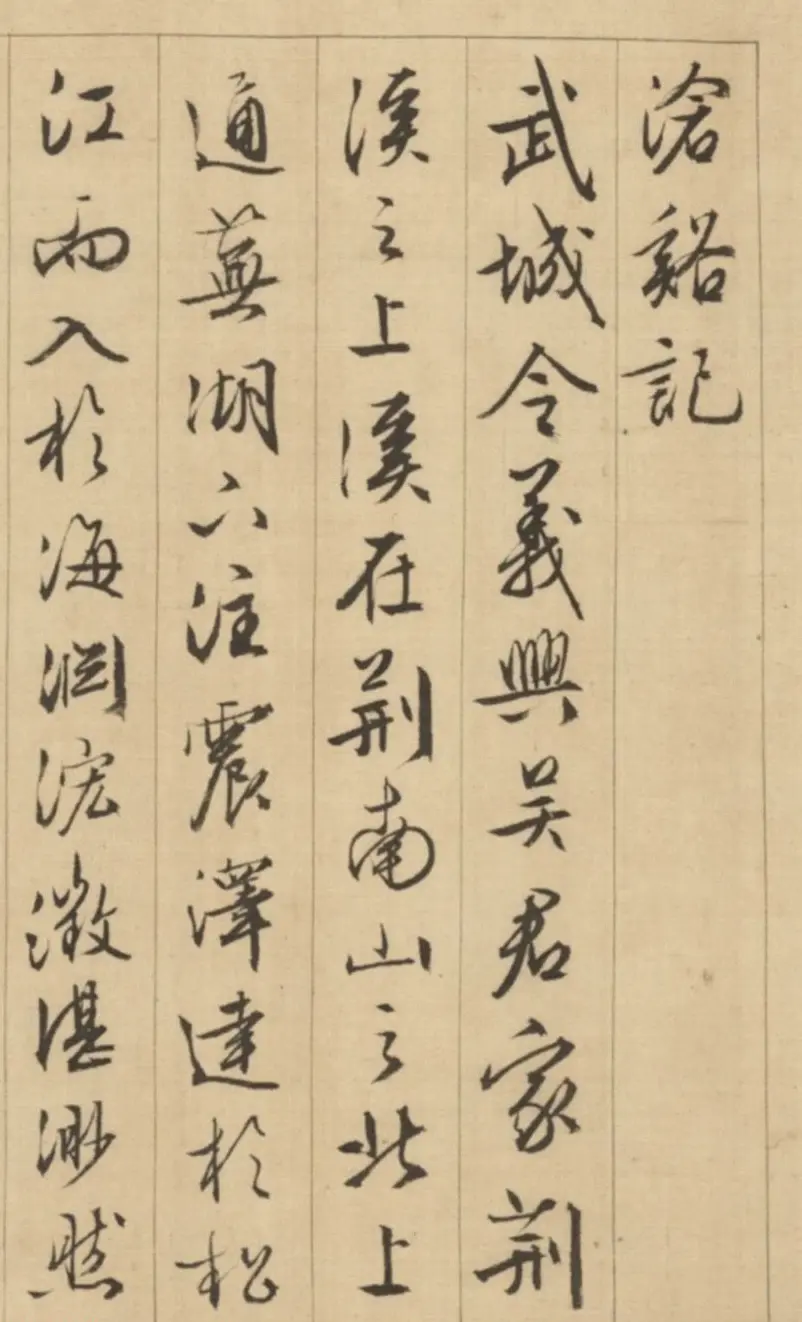 滄谿記
武城令義興吴君家荆
溪之上溪在荆南山之北上
通蕪湖下注震澤達於松
江而入於海淵浤澂湛渺然